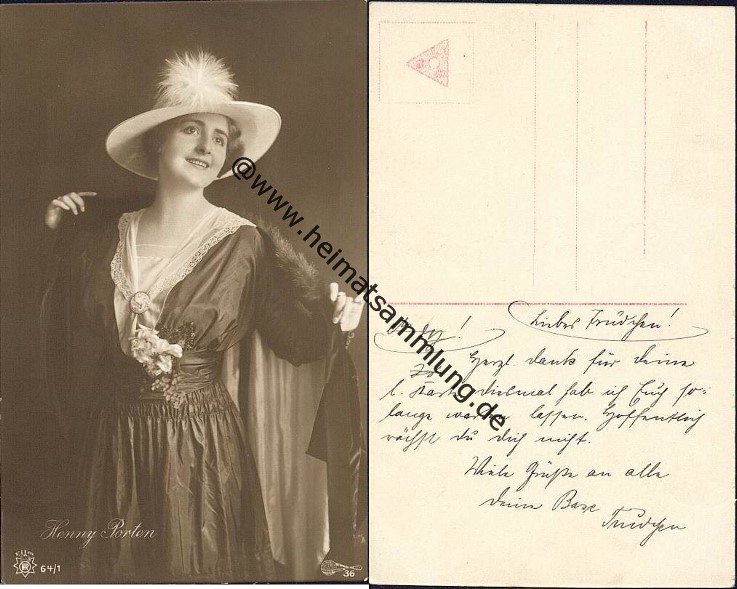 Henny Porten
64/1
36
@www.heimatsammlung.de
Liebes Trudchen!
Herzl. dank für deine
l. Karte diesmal hab ich Euch so-
lange warten lassen. Hoffentlich
rächst du dich nicht.
Viele Grüße an alle
deine Base
Trudchen